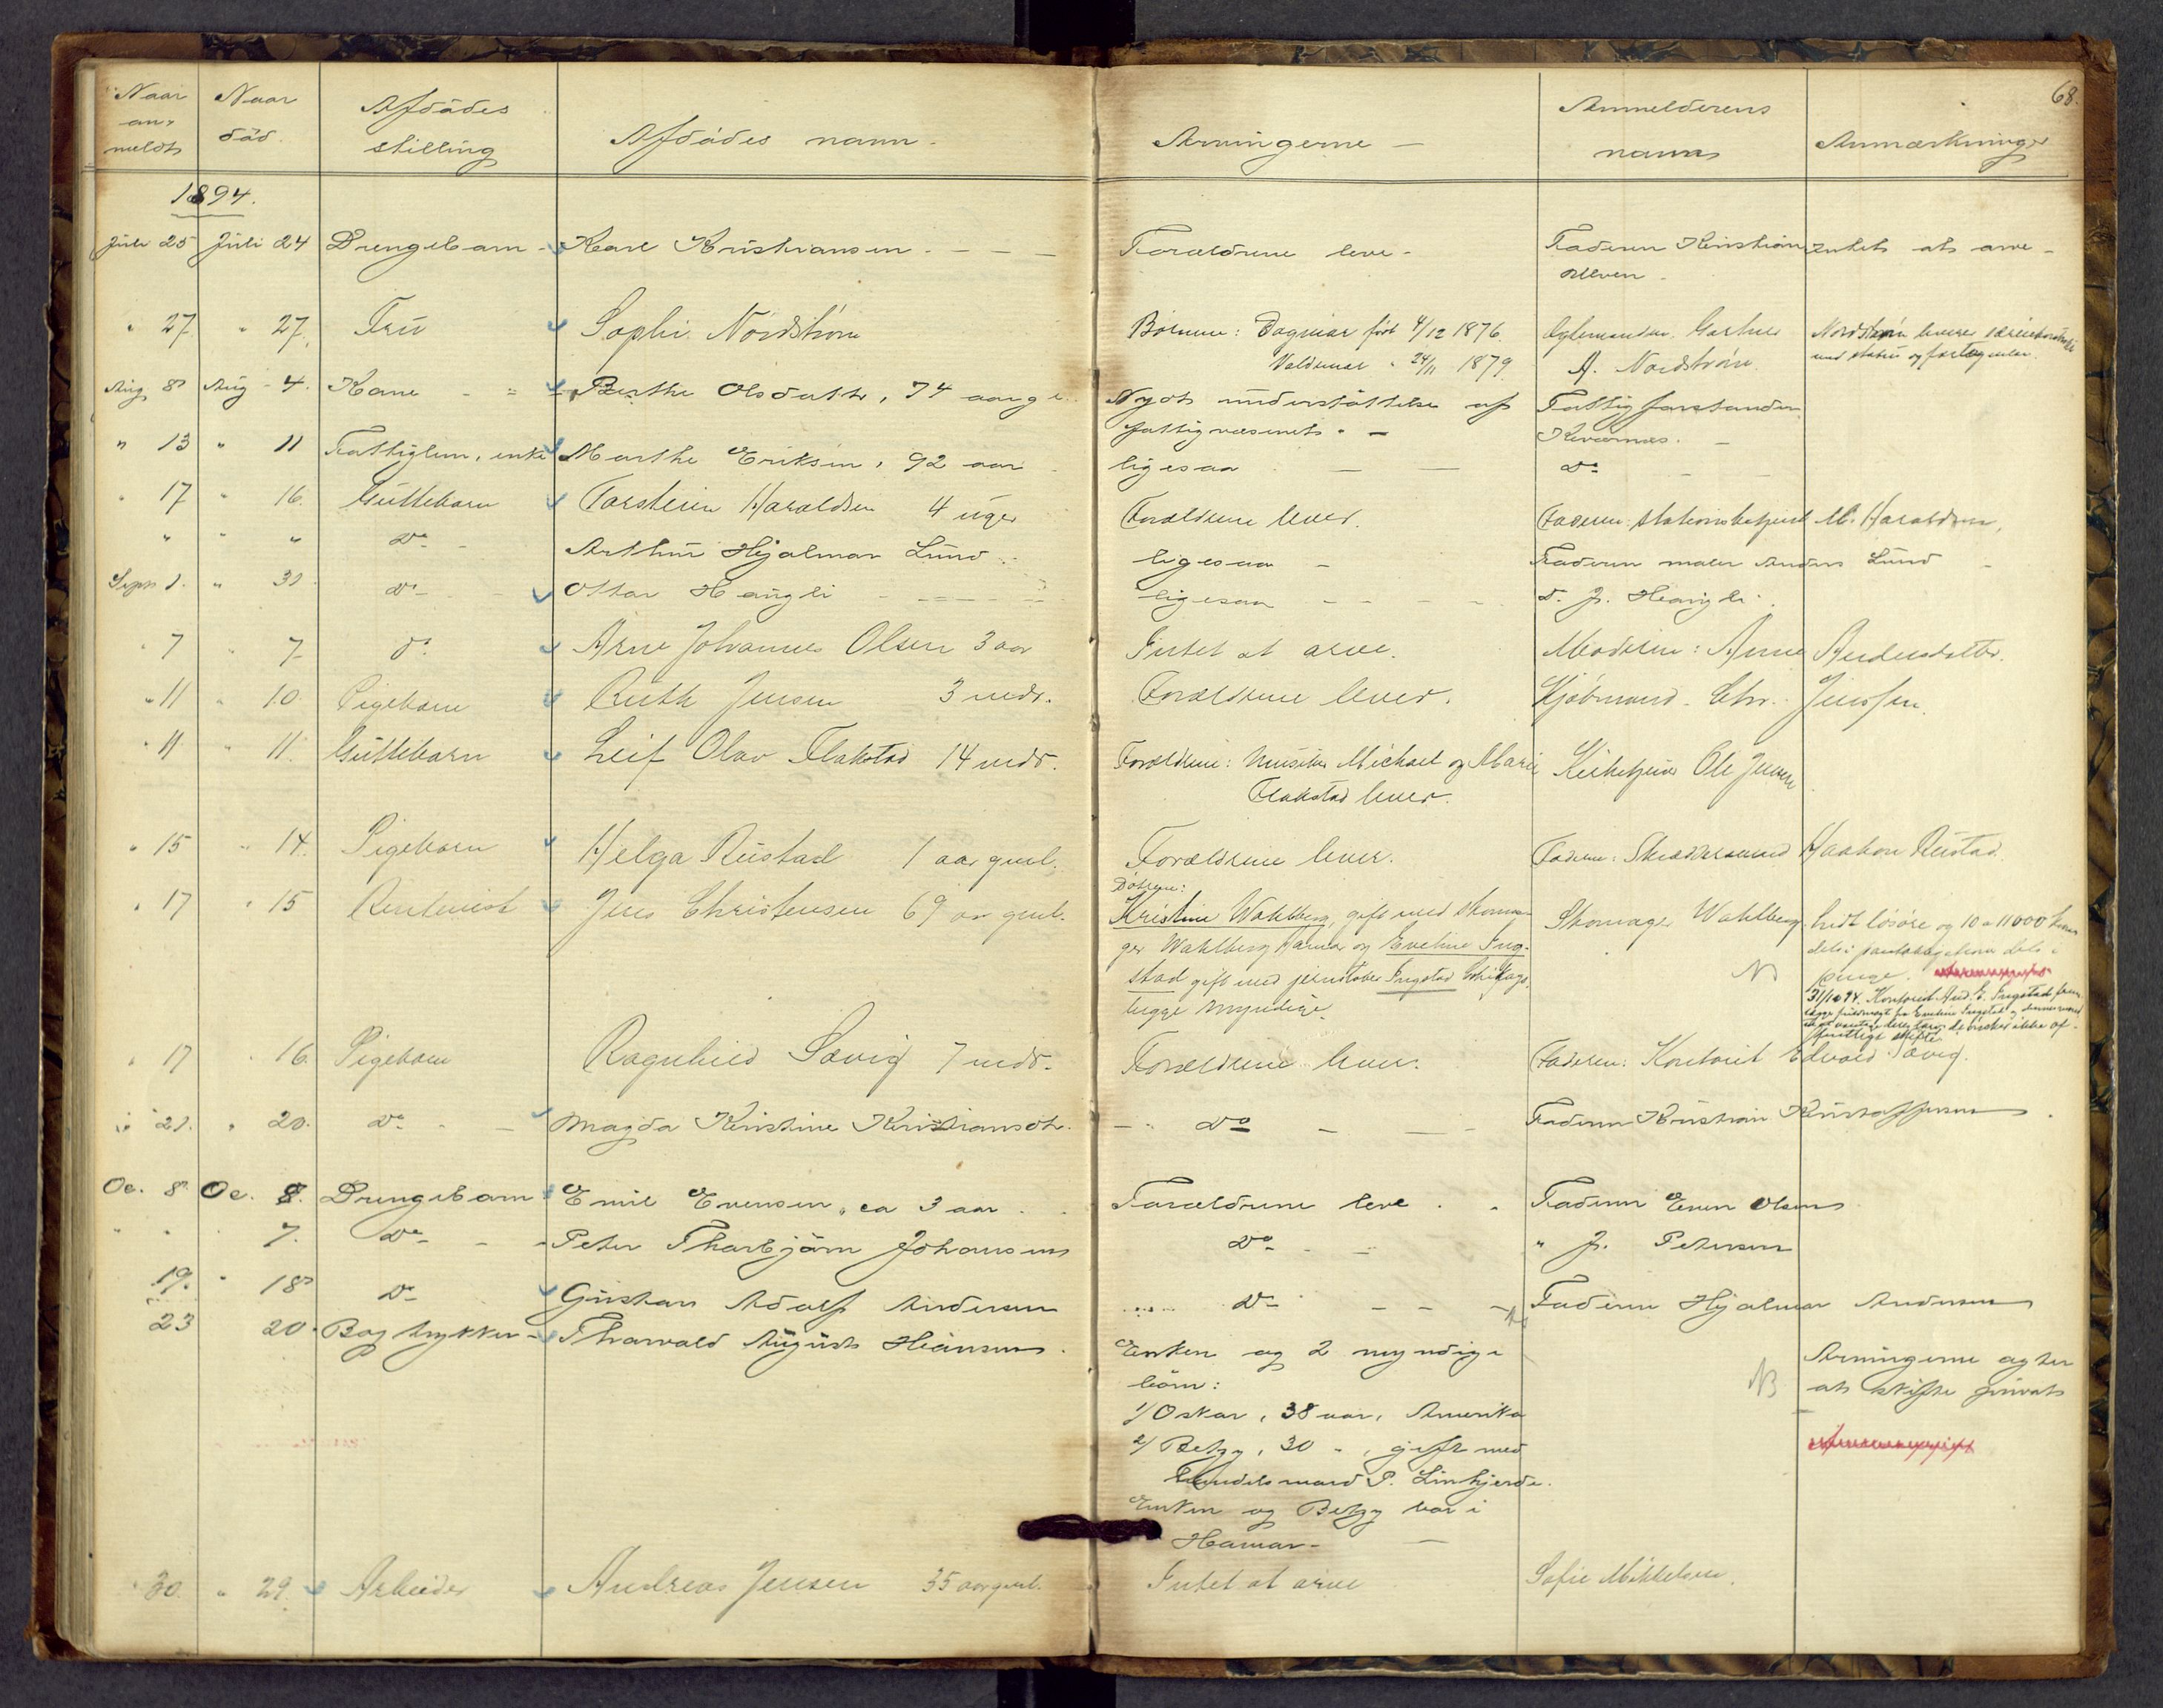 68.
Naar an- meldt Naar död. Afdödes stilling Afdödes navn. Arvingerne — Anmelderens navn Anmærkninger
1894.
Juli 25 Juli 24 Drengebarn - Karl Kristiansen - - - Forældrene leve - Faderen Kristian Intet at arve -
" 27 " 27. Frü Sophie Nordström Börnene: Dagmar födt 4/12 1876. Gartner Nordström
Valdemar " 24/11 1879. A. Nordström. med status og
Aug 8 Aug - 4. Kone - Berthe Olsdatter, 74 aar g. Nydt understöttelse af Fattigforstander
fattigvæsenet. - Kværnæs. -
" 13 " 11 Fattiglem, enke Marthe Eriksen, 92 aar ligesaa - - do
" 17 " 16. Guttebarn Torstein Haraldsen 4 uger Forældrene lever. Faderen: Stationsbetjent M. Haraldsen,
" " " do - Arthur Hjalmar Lünd ligesaa - Faderen maler Anders Lünd -
Sept 1. " 31 do - Ottar Haugli - ligesaa - - - - d. J. Haugli.
" 7 " 7 do. Arne Johannes Olsen 3 aar Intet at arve. Moderen: Anne Andersdatter.
" 11 " 10. Pigebarn Ruth Jensen 3 mdr. Forældrene lever. Kjöbmand Chr. Jenssen
" 11 " 11. Guttebarn Leif Olav Flakstad 14 mdr. Forældrene: Musiker Michael og Marie Kirketjener Ole Jensen
Flakstad lever.
" 15 " 14. Pigebarn Helga Rüstad 1 aar gml. Forældrene lever. Faderen: Skræddersvend Haakon Rüstad.
Dötrene:
" 17 " 15 Rentenist Jens Christensen 69 aar gml. Kristine Wahlberg, gift med skoma- Skomager Wahlberg. lidt lösöre og 10 a 11000 kroner
ger Wahlberg Hamar og Eveline Ing- dels i dels i
stad gift med Ingstad Chikago. N penge.
begge myndige. 31/10 94. Kontorist And. E. Ingstad
fuldmagt fra Eveline Ingstad og
de önsker ikke of-
fentlige skifte
" 17 " 16. Pigebarn Ragnhild Sævig 7 mdr. Forældrene lever. Faderen: Kontorist Edvard Sævig.
" 21. " 20. do - - Magda Kristine Kristiansdtr. - " do - - - Faderen Kristian Kristoffersen.
Oc. 8 Oc. 8. Drengebarn Emil Evensen, ca 3 aar. Forældrene leve. Faderen Even Olsen
" " 7. do - - Peter Thorbjörn Johansen do - - " J. Petersen
19. " 18 do Gustav Adolf Andersen do - - - Faderen Hjalmar Andersen
23 20. Bogtrykker - Thorvald August Hansen. Enken og 2 myndige NB Arvingerne agter
börn: at skifte privat
1/ Oskar, 38 aar, Amerika
2/ Betzy, 30 ", gift med
Handelsmand P. Linkjerde.
Enken og Betzy bor i
Hamar - -
" 30. " 29. Arbeider Andreas Jensen 35 aar gml. Intet at arve Sofie Mikkelsen.